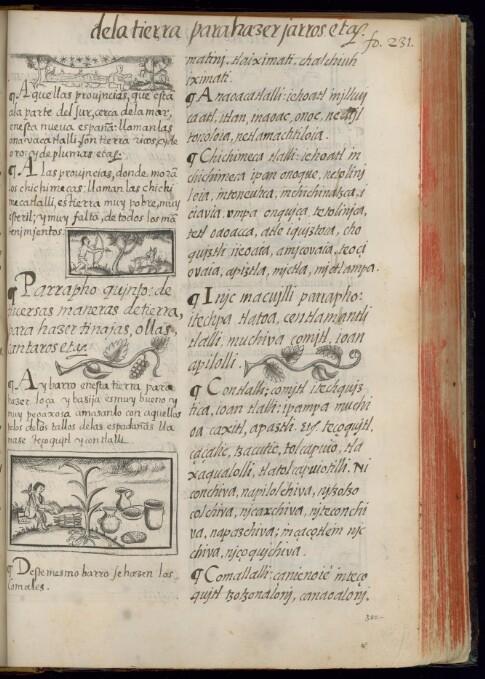 de la tierra para hazer jarros etc̃.
fo. 231.
¶ Aquellas prouincias, que estã
ala parte del sur, cerca dela mar,
enesta nueua españa: llaman las
anavacatlalli: son tierra ricas, y de
oro: y de plumas etc̃.
¶ A las prouincias, donde morã
los chichimecas: llaman las chichi
mecatlalli, es tierra muy pobre, muy
esteril: y muy falta, de todos los mã
tenjmjentos.
¶ Parrapho quinto: de
diuersas maneras de tierra,
para hazer tinajas, ollas,
cantaros etc̃.
¶ Ay barro enesta tierra para
hazer loça, y basija es muy bueno y
muy pegaxosa amasando con aquellos
pelos delos tallos delas espadañas lla
mase teçoqujtl y contlalli.
¶ Deste mesmo barro se hazen los
comales.
matinj, tlaiximati, chalchiuh
iximati.
¶ Anaoacatlalli: iehoatl mjlluj
caatl, itlan, maoac, onoc,
toxoloia, netlamachtiloia.
¶ Chichimeca tlalli: iehoatl in
chichimeca ipan onoque,
vmpa onqujça, tetolinja,
tetl oaoacca, atle iqujztoca, cho
qujztli neoaia, amjcovaia, teoçi
ovaia, apiztla, mjctla, mjctlampa.
¶ Injc macujlli parrapho:
itechpa tlatoa, centlamantli
tlalli, muchiva comjtl, ioan
apilolli.
¶ Contlalli: comjtl itechqujz
tica, ioan tlalli: ipampa muchi
oa caxitl, apaztli. Etc̃. teçoqujtl.
çaçalic, tzacutic, tolcapuio, tla
xaqualolli, tlatolcapuiotilli. Nj
conchiva, napilolchiva, njtzotzo
colchiva, njcaxchiva, njteconchi
va, napazchiva; in çaçotlein njc
chiva, njçoqujchiva.
¶ Comallalli: canienoie in teço
qujtl tzotzonalonj, canaoalonj,